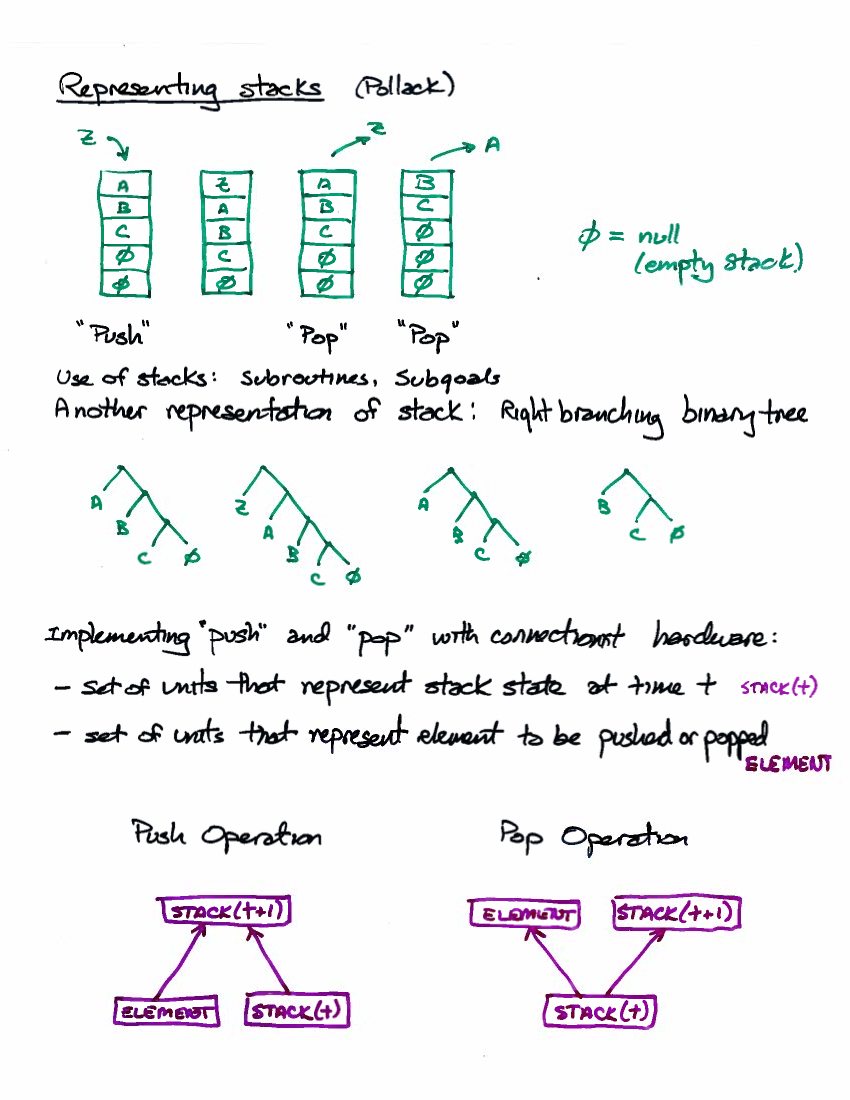 Representing stacks (Pollack)
Z Z A
A Z A B
B A B C
C B C φ
φ C φ φ
φ φ φ φ
φ = null
(empty stack)
"Push" "Pop" "Pop"
Use of stacks: Subroutines, Subgoals
Another representation of stack: Right branching binary tree
A Z A B
B A B C φ
C φ B C φ
C φ
Implementing "push" and "pop" with connectionist hardware:
- set of units that represent stack state at time t STACK(t)
- set of units that represent element to be pushed or popped
ELEMENT
Push Operation Pop Operation
STACK(t+1) ELEMENT STACK(t+1)
ELEMENT STACK(t) STACK(t)